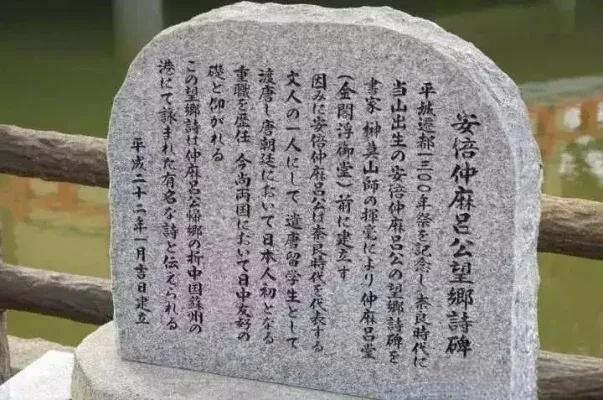 安倍仲麻呂公望郷詩碑
平城遷都一三〇〇年祭を記念し奈良時代に
当山出生の安倍仲麻呂公の望郷詩碑を
書家榊莫山師の揮毫により仲麻呂堂
(金閣浮御堂)前に建立す
因みに安倍仲麻呂公は奈良時代を代表する
文人の一人にして遣唐留学生として
渡唐し唐朝廷において日本人初となる
重職を歴任 今尚両国において日中友好の
礎と仰がれる
この望郷詩は仲麻呂公帰郷の折中国蘇州の
港にて詠まれた有名な詩と伝えられる
平成二十二年一月吉日建立